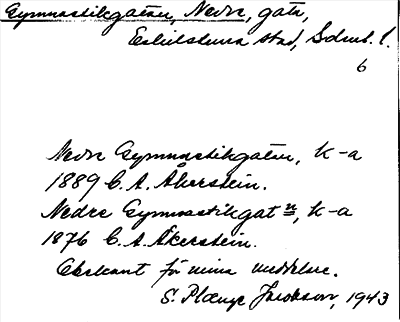 Gymnastikgatan, Nedre, gata,
Eskilstuna stad, Sdml. l.
6
Nedre Gymnastikgatan, k-a
1889 C. A. Åkerstein.
Nedre Gymnastikgatn, k-a
1876 C. A. Åkerstein.
Obekant för mina meddelare.
S. Jacobson, 1943